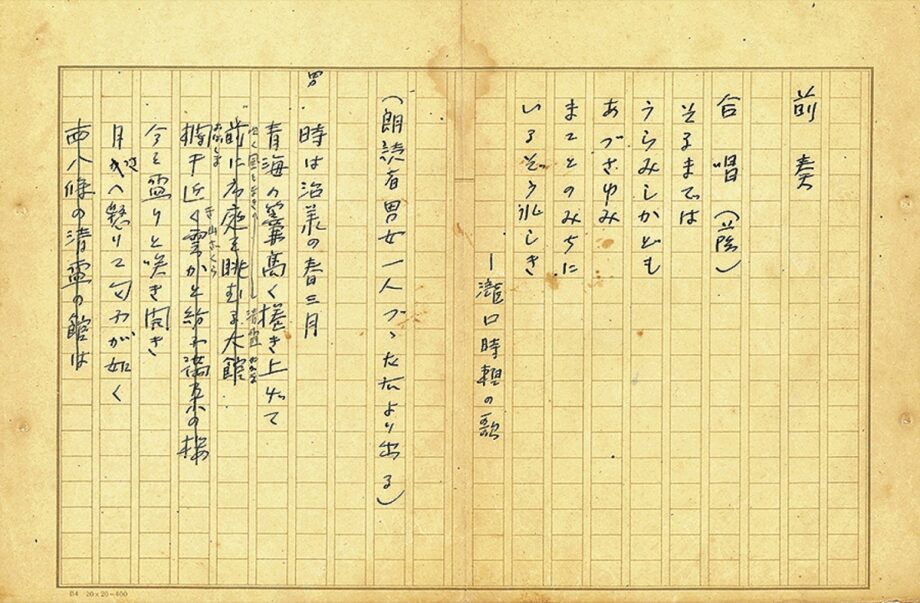 前奏
合唱(蔭)
そるまでは
うらみしかども
あづさゆみ
まことのみちに
いるぞうれしき
―瀧口時頼の歌
(朗読者男女一人づゝ左右より出る)
男 時は治承の春三月
青海の簾高く捲き上げて
前に広庭を眺むる大館
欄干近く雲かと紛ふ満朶の桜
今を盛りと咲き開き
月さへ懸りて匂ふが如く
西八條の清盛の館は
B4 20×20=400